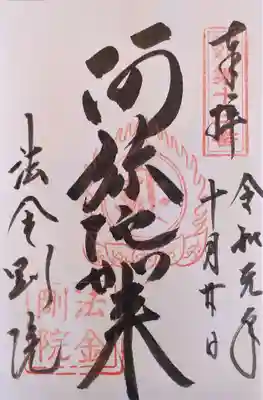 奉拝
令和元年
十月廿日
阿弥陀如来
法金剛院
法金
剛院